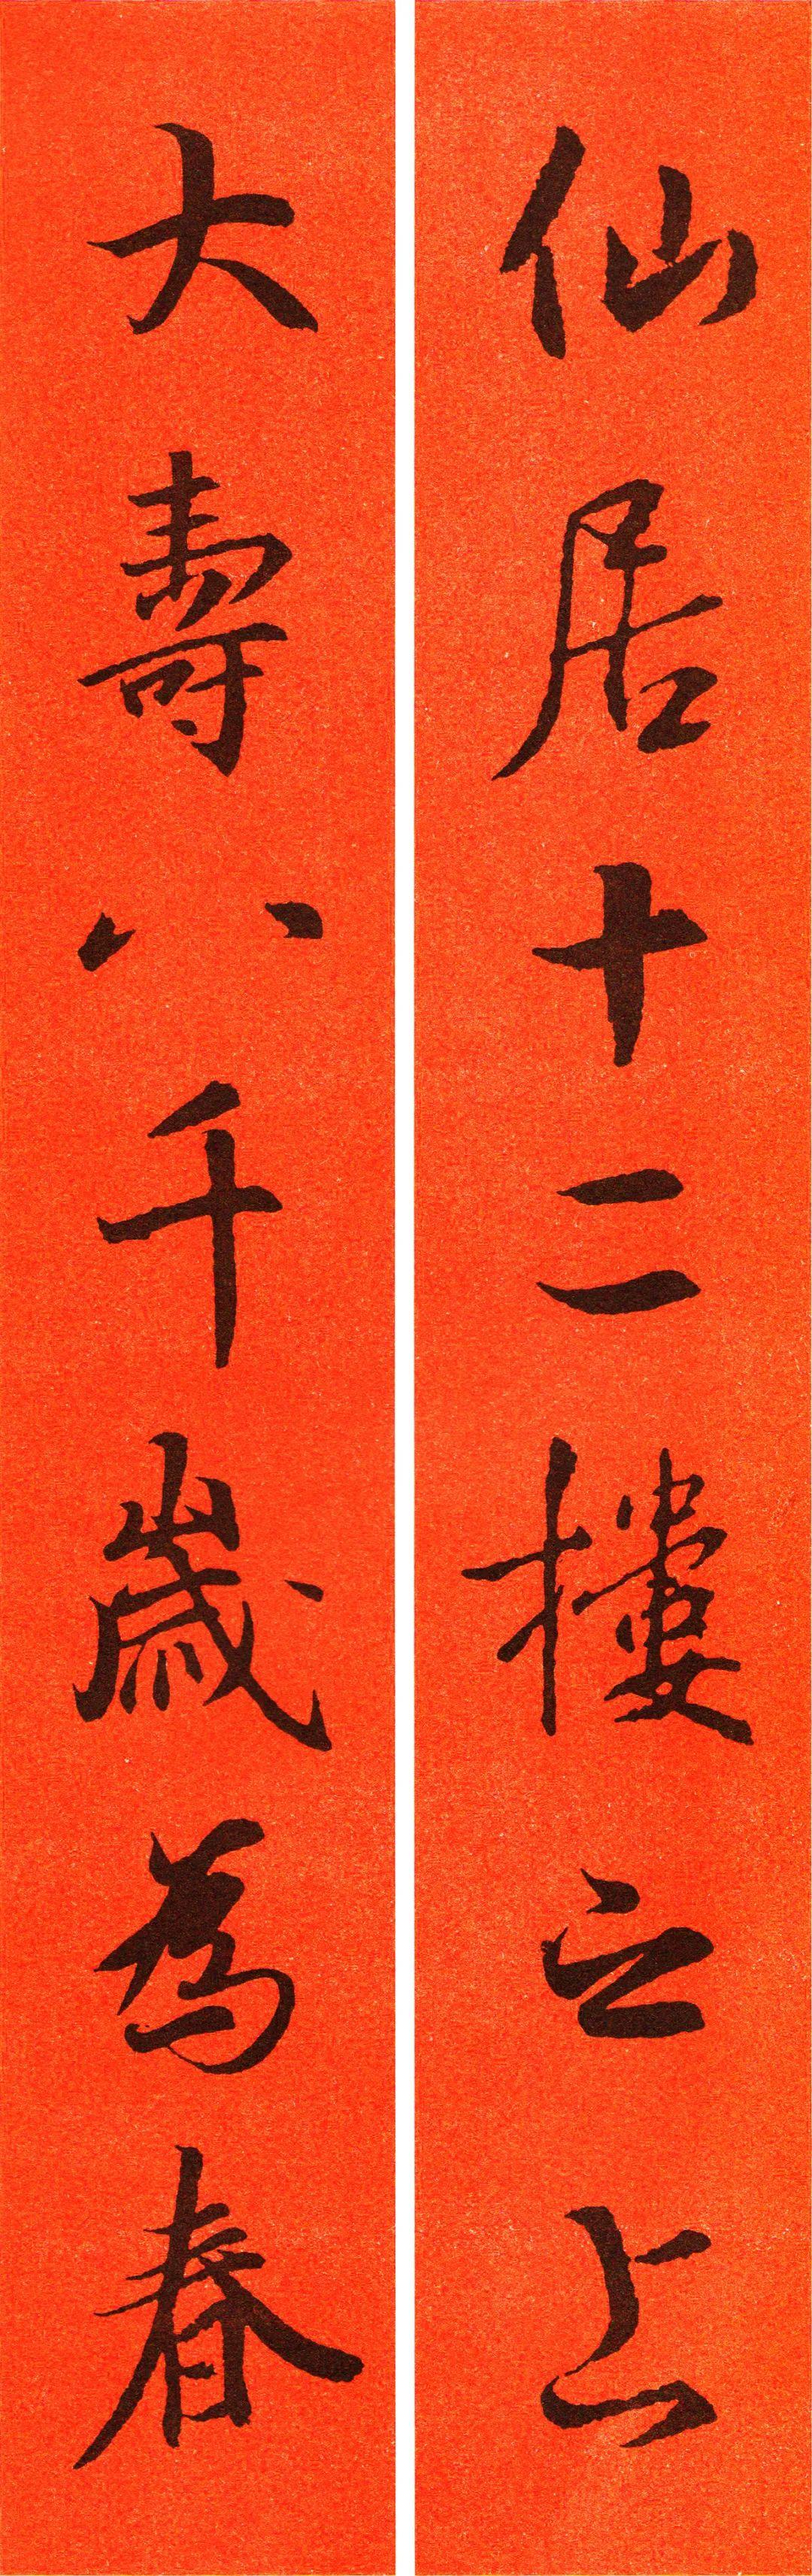 仙居十二楼之上
大壽八千歲為春